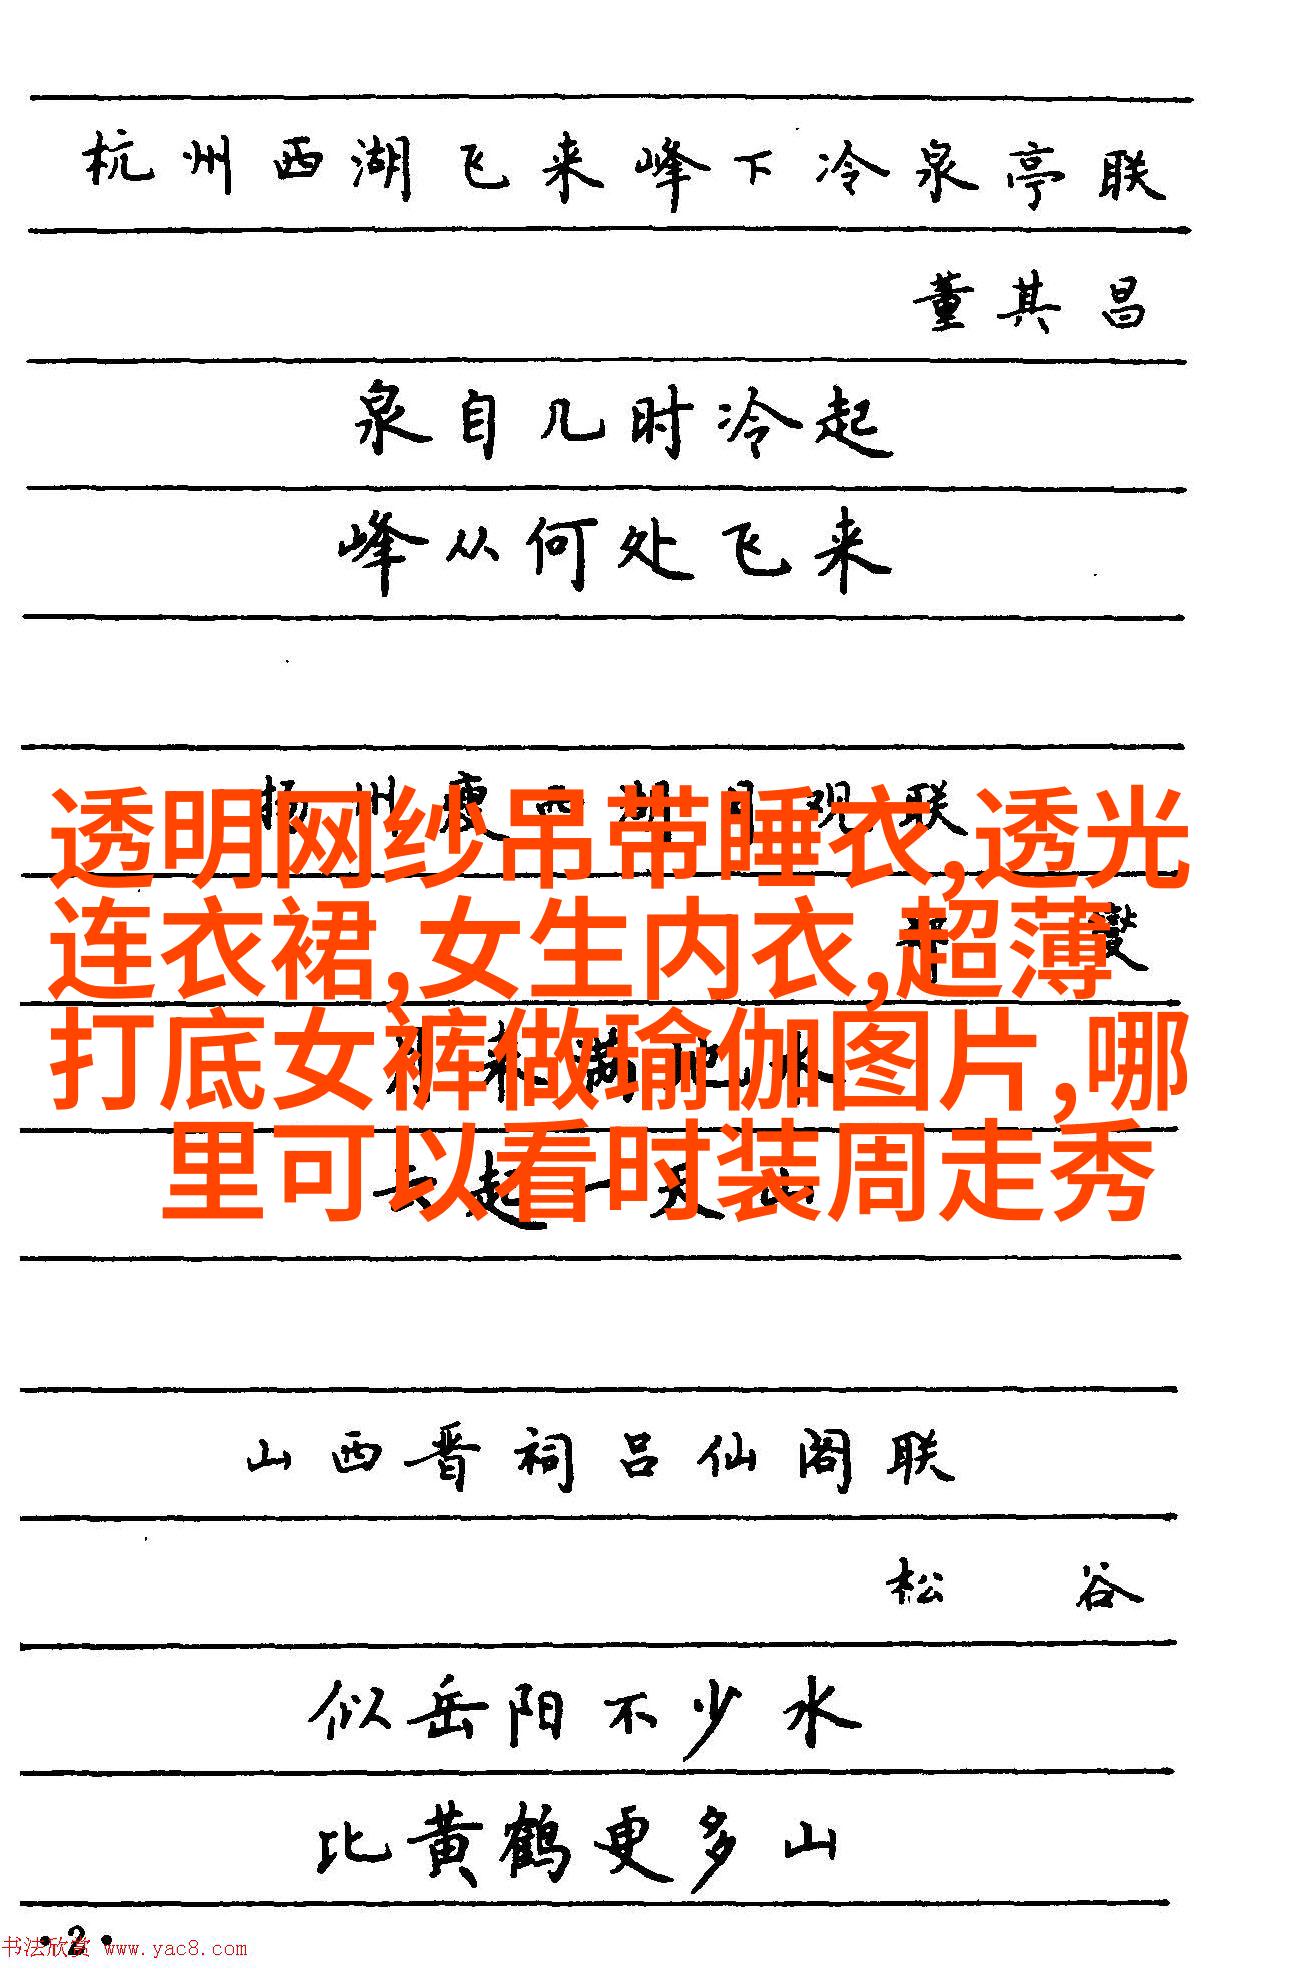 杭州西湖飞来峰下冷泉亭联
董其昌
泉自几时冷起
峰从何处飞来
扬州瘦西湖月观联
透明网纱吊带睡衣,透光
燮
连衣裙,女生内衣,超薄
月来满地水
打底女裤做瑜伽图片,哪
云起一天山
里可以看时装周走秀
山西晋祠吕仙阁联
松谷
似岳阳不少水
比黄鹤更多山
·2·
书法欣赏 www.yac8.com